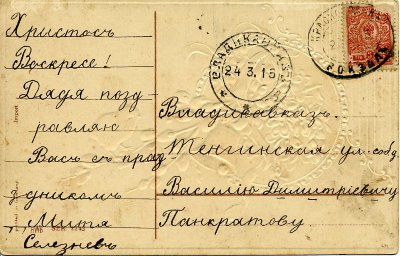 Христосъ
Воскресе!
Дядя позд
равляю
Васъ съ праз
дникомъ
Митя
Селезневъ
ВЛАДИКАВКАЗЪ
24 3 15
ВОКЗАЛЪ
Владикавказъ.
Тенгинская ул. соб д
Василію Димитріевичу
Панкратову